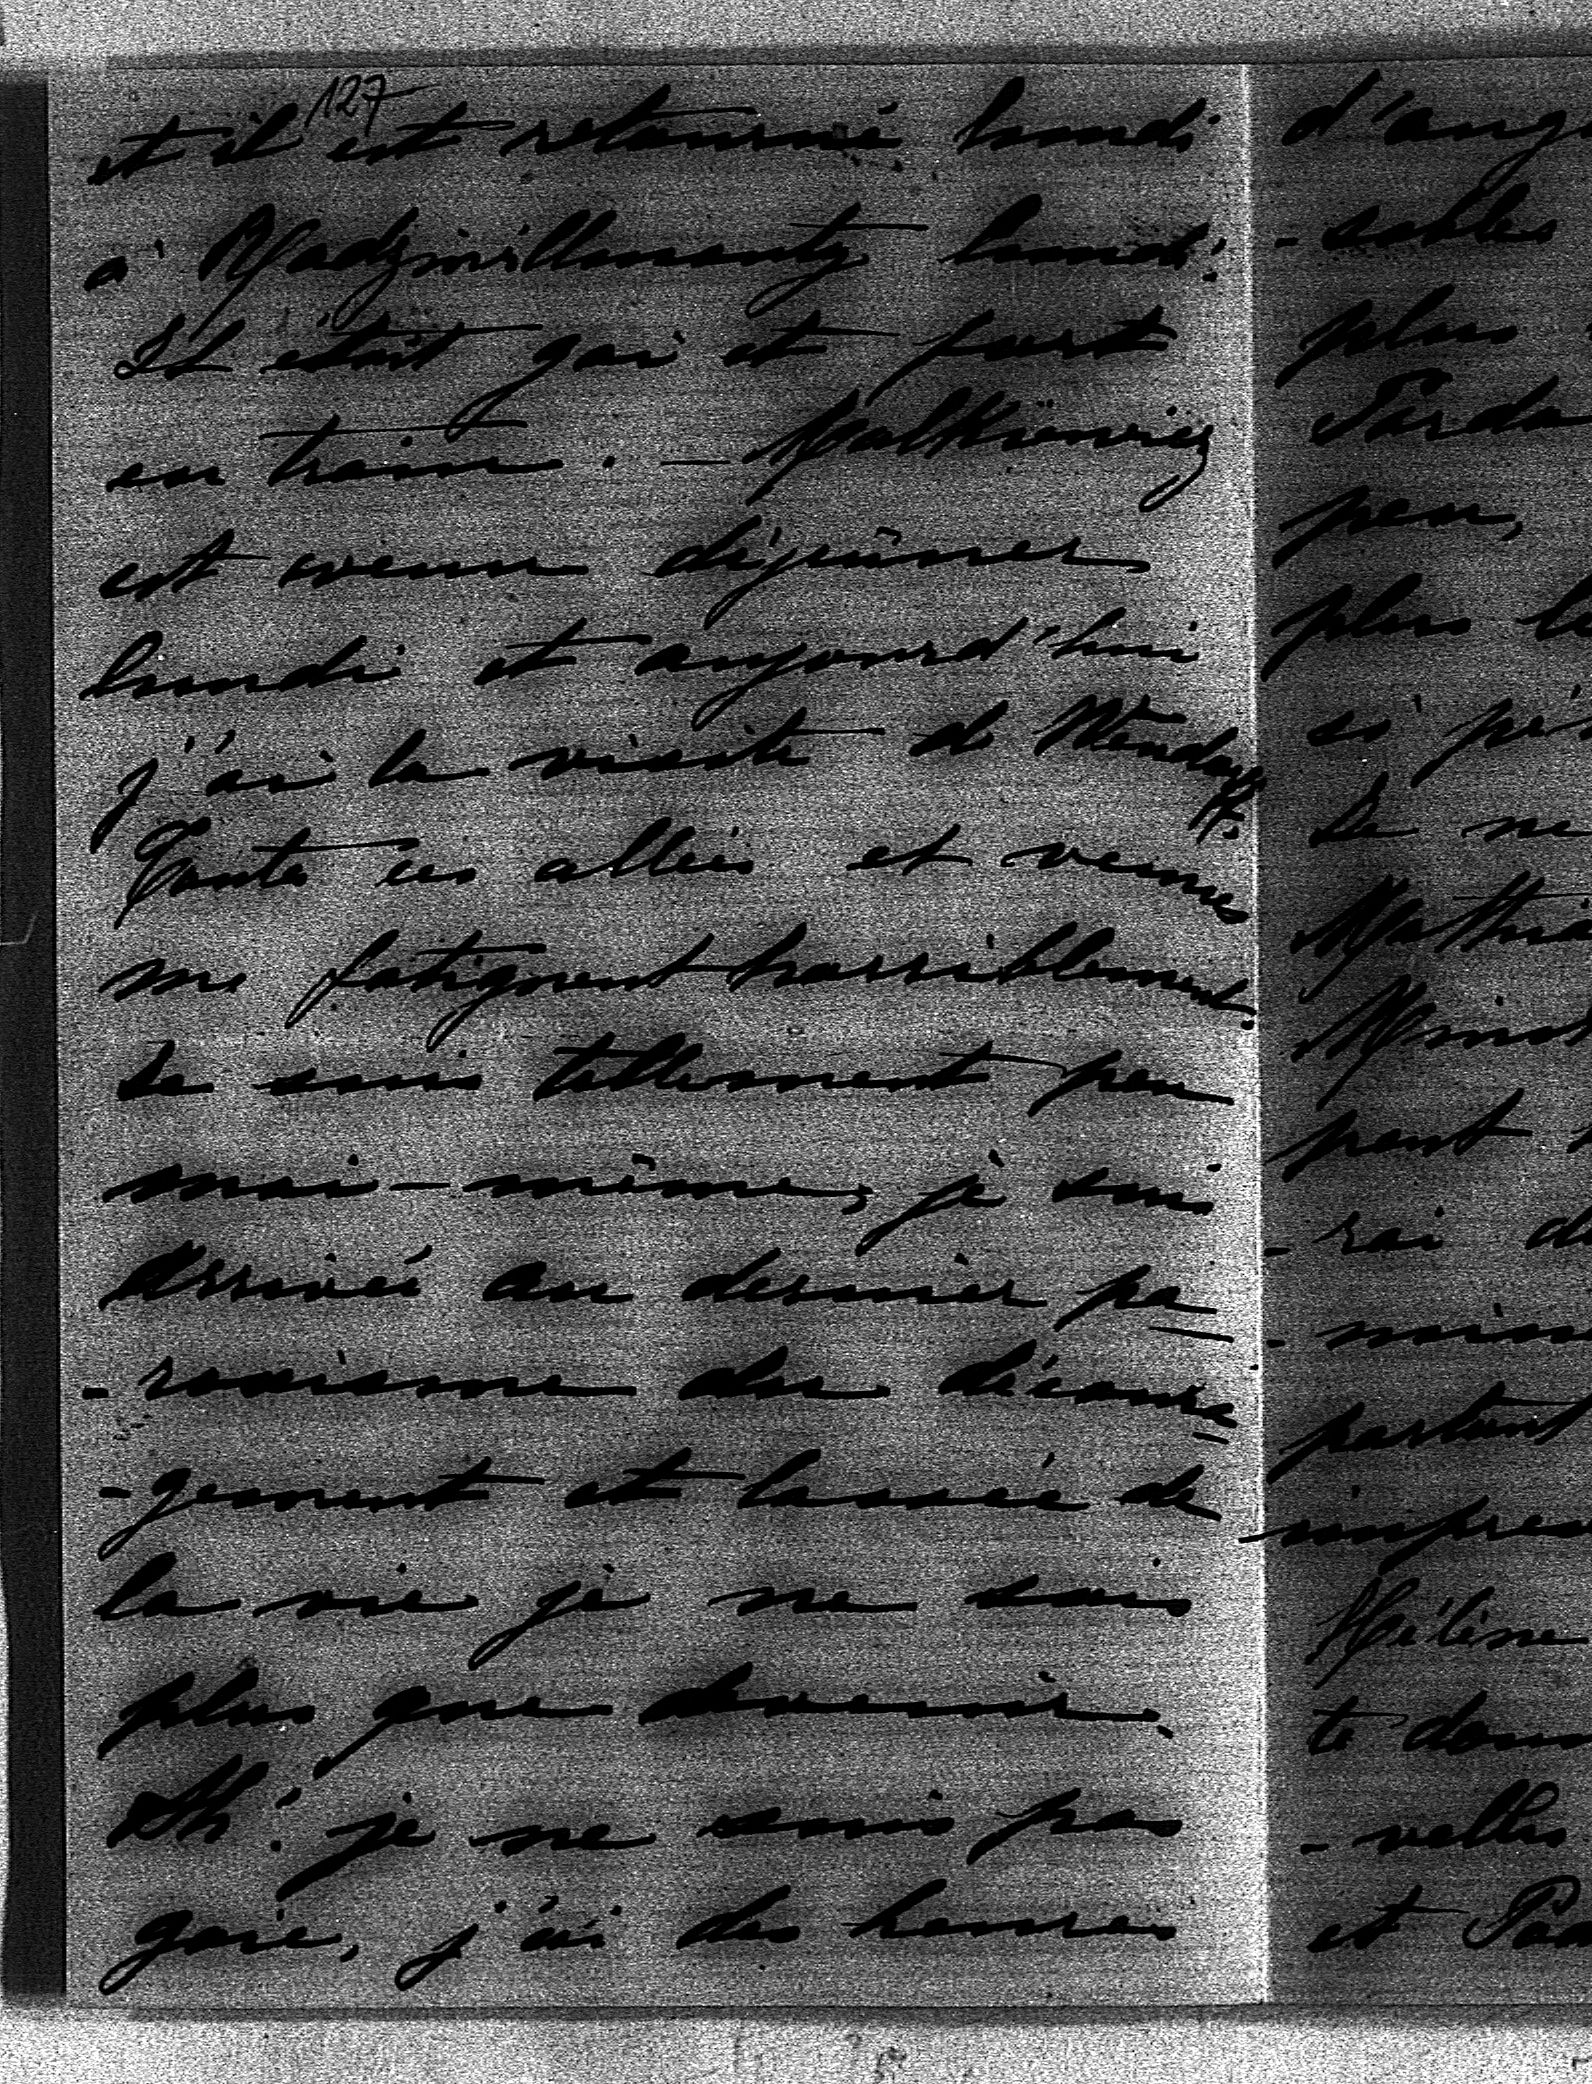 127
et il est retourné lundi
à Radziwillmonty lundi.
Il était gai et fort
en train. — Malkiewicz
est venu déjeuner
lundi et aujourd'hui
j'ai la visite de
Toute ces allées et venues
me fatiguent horriblement.
Je suis tellement peu
moi-même, je suis
Arrivée au dernier pa-
-roxisme du découra-
-gement et lassée de
la vie je ne sais
plus que devenir.
Ah! je ne suis pas
gaie, j'ai des heures
d'ang
-sables
plus
peu,
plus
si
Je ne
peut
-rai
partent
impres
Hélène
te donn
-velles
et